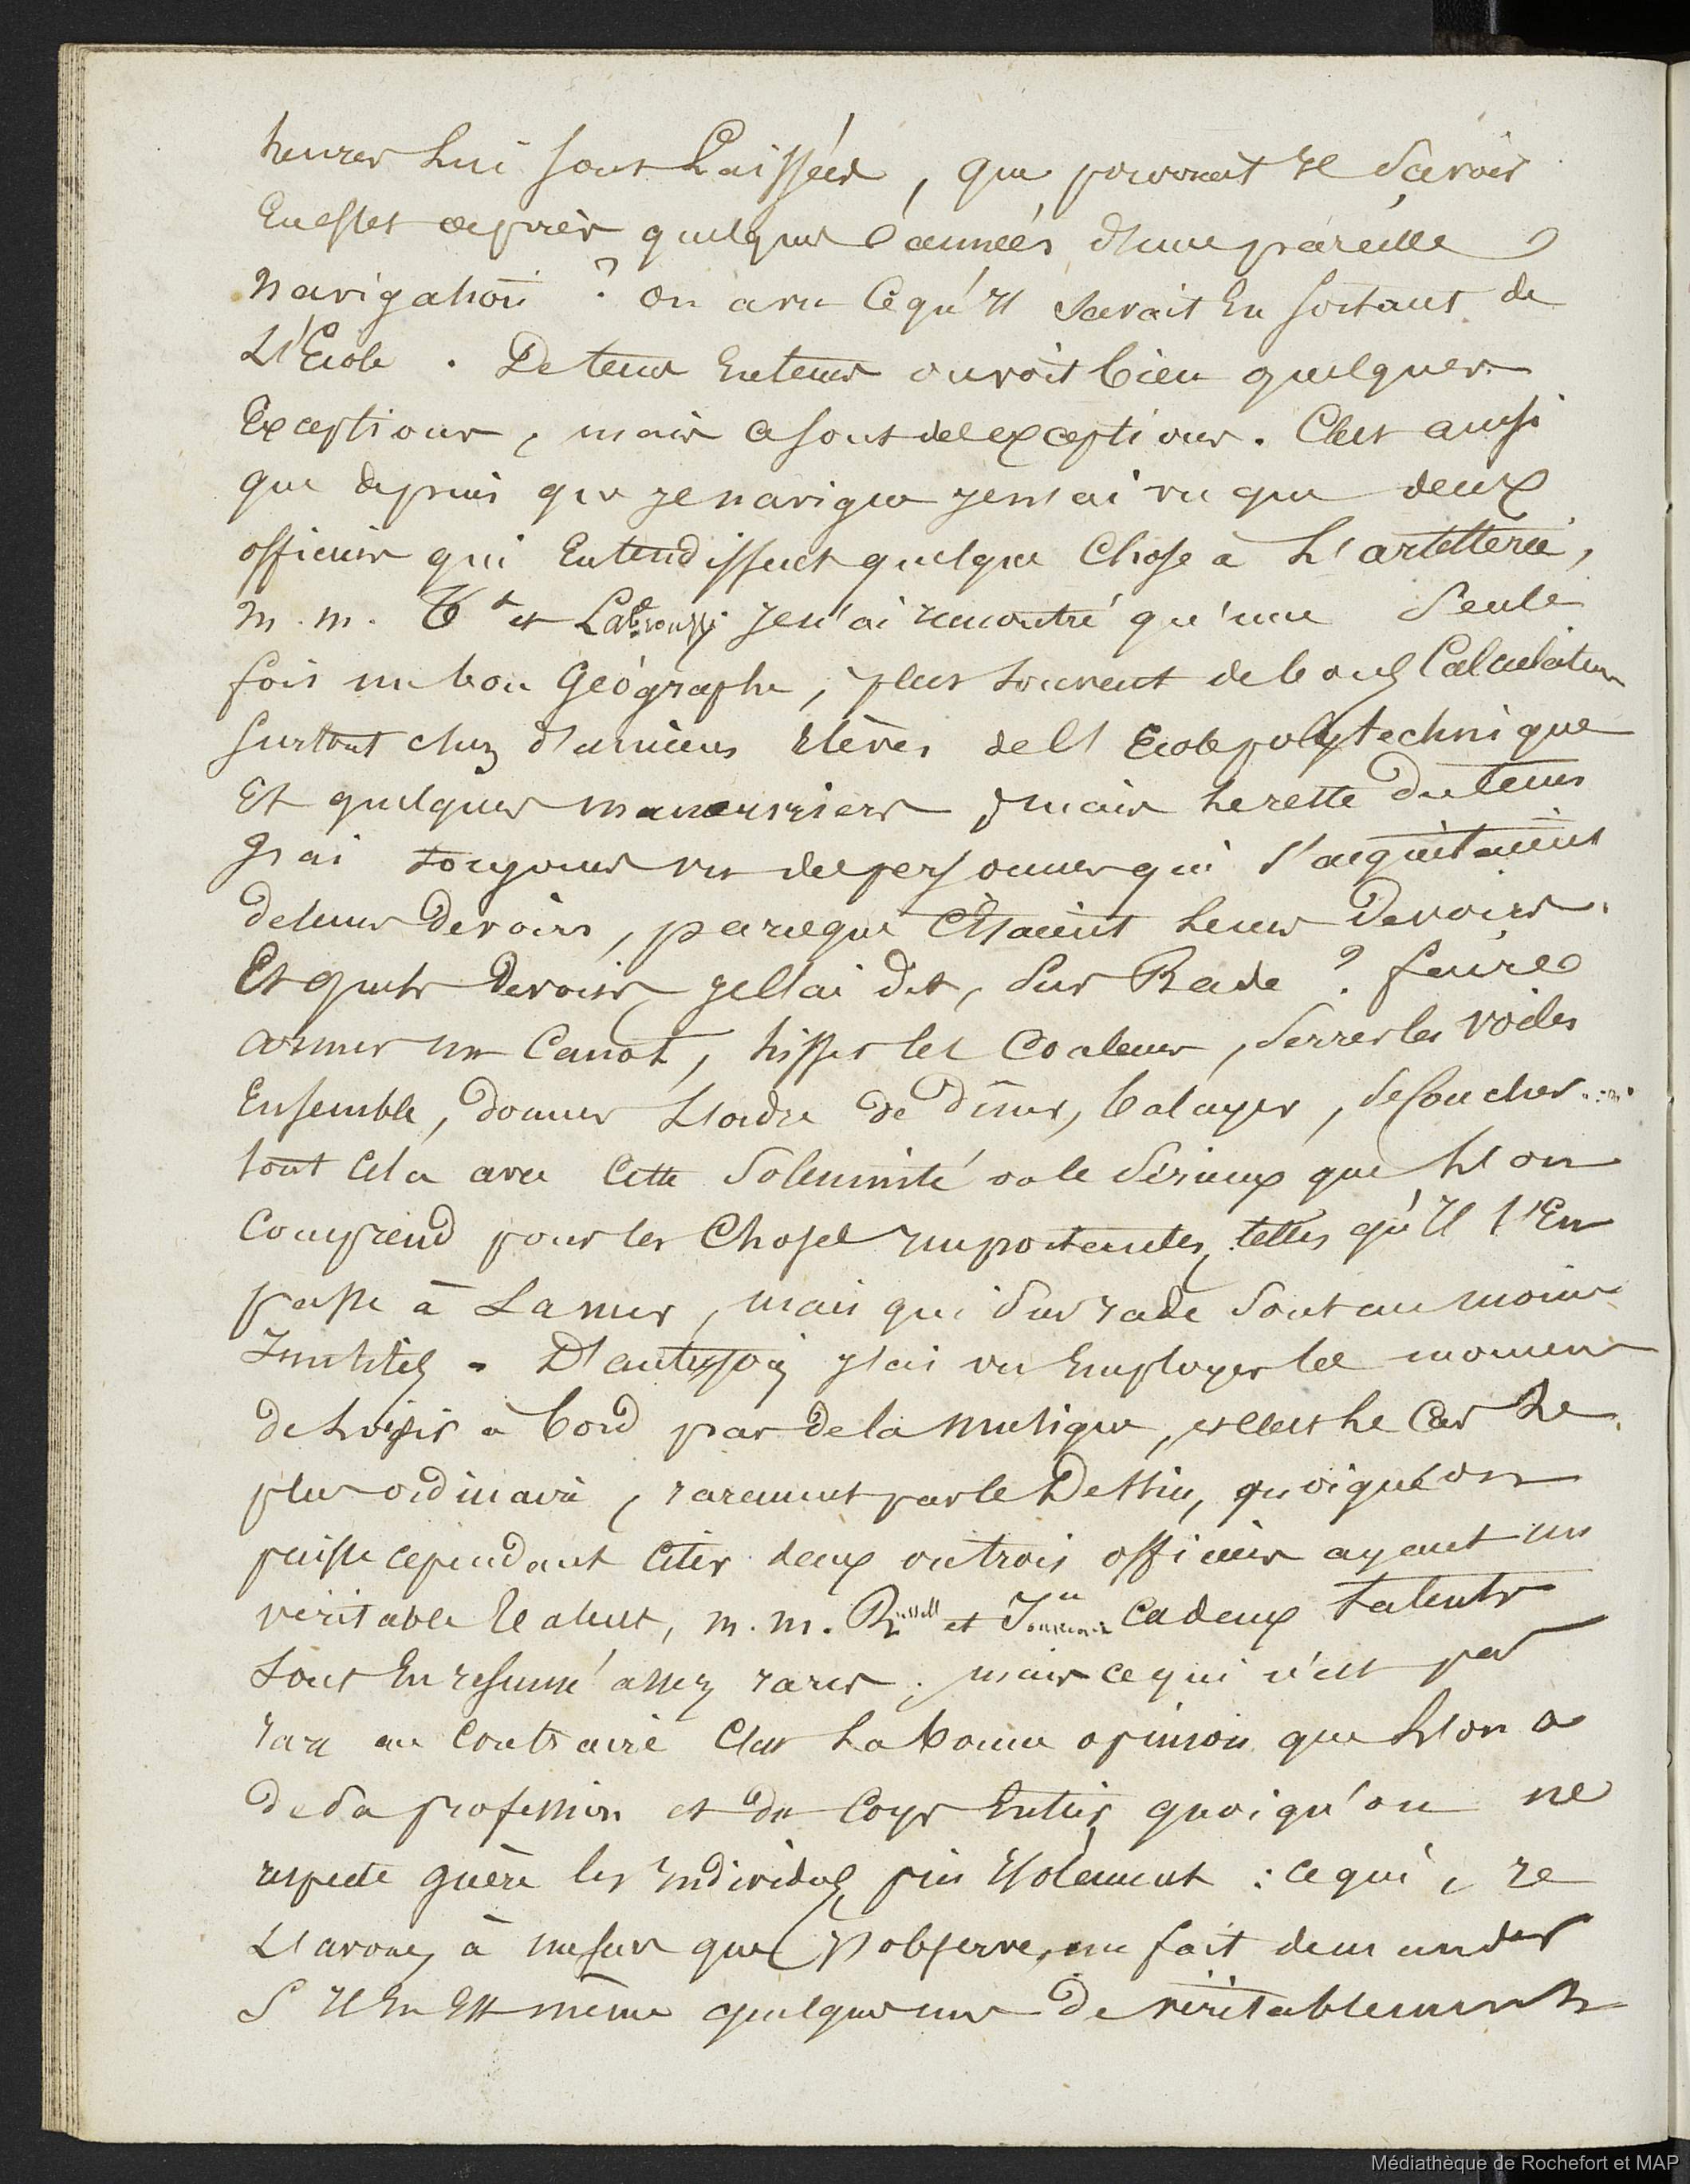 heures lui sont laissées, que pourrait il savoir
En effet après quelques années d'une pareille
navigation ? on a vu ce qu'il savait En sortant de
L'Ecole. De tems En tems on voit bien quelques
Exceptions, mais ce sont des exceptions. C'est ainsi
que depuis que je navigue je n'ai vu que deux
officiers qui Entendissent quelque Chose à L'artillerie,
m. m. et je n'ai rencontré qu'une seule
fois un bon Géographe, plus souvent de bons Calculateurs
surtout chez d'anciens élèves de l'Ecole polytechnique
Et quelques manœuvriers, mais le reste du tems
j'ai toujours vu des personnes qui s'acquittaient
de leurs Devoirs, parceque C'étaient leurs Devoirs.
Et quels Devoirs, je l'ai dit, sur Rade ? faire
armer un Canot, hisser les Couleurs, serrer les voiles
Ensemble, donner L'ordre de dîner, balayer, se coucher ....
tout Cela avec Cette solennité ou le sérieux que L'on
Comprend pour les Choses importantes, telles qu'il s'En
passe à La mer, mais qui sur rade sont au moins
Inutiles. D'autrefois j'ai vu Employer les momens
de loisir à bord par de la musique, et c'est le Cas le
plus ordinaire, rarement par le Dessin, quoiqu'on
puisse cependant citer deux ou trois officiers ayant un
véritable talent, m. m. Russell et Ces deux talents
sont En résumé assez rares. mais ce qui n'est pas
rare au Contraire C'est La bonne opinion que L'on a
de sa profession et du Corps Entier, quoiqu'on ne
respecte guère les individus pris Isolément : ce qui, je
L'avoue, à mesure que j'observe, me fait demander
s'il En Est même quelques uns de véritablement
Médiathèque de Rochefort et MAP